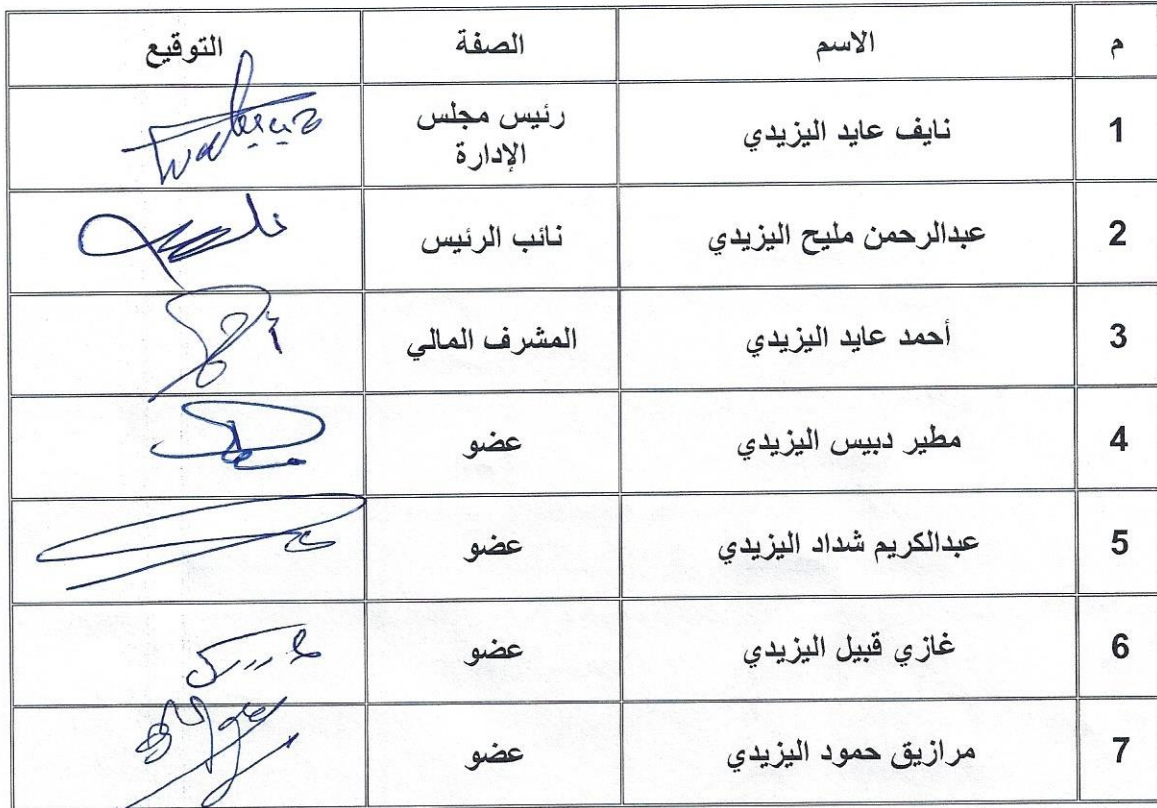 م الاسم الصفة التوقيع
1 نايف عايد اليزيدي رئيس مجلس الإدارة
2 عبدالرحمن مليح اليزيدي نائب الرئيس
3 أحمد عايد اليزيدي المشرف المالي
4 مطير دبيس اليزيدي عضو
5 عبدالكريم شداد اليزيدي عضو
6 غازي قبيل اليزيدي عضو
7 مرازيق حمود اليزيدي عضو